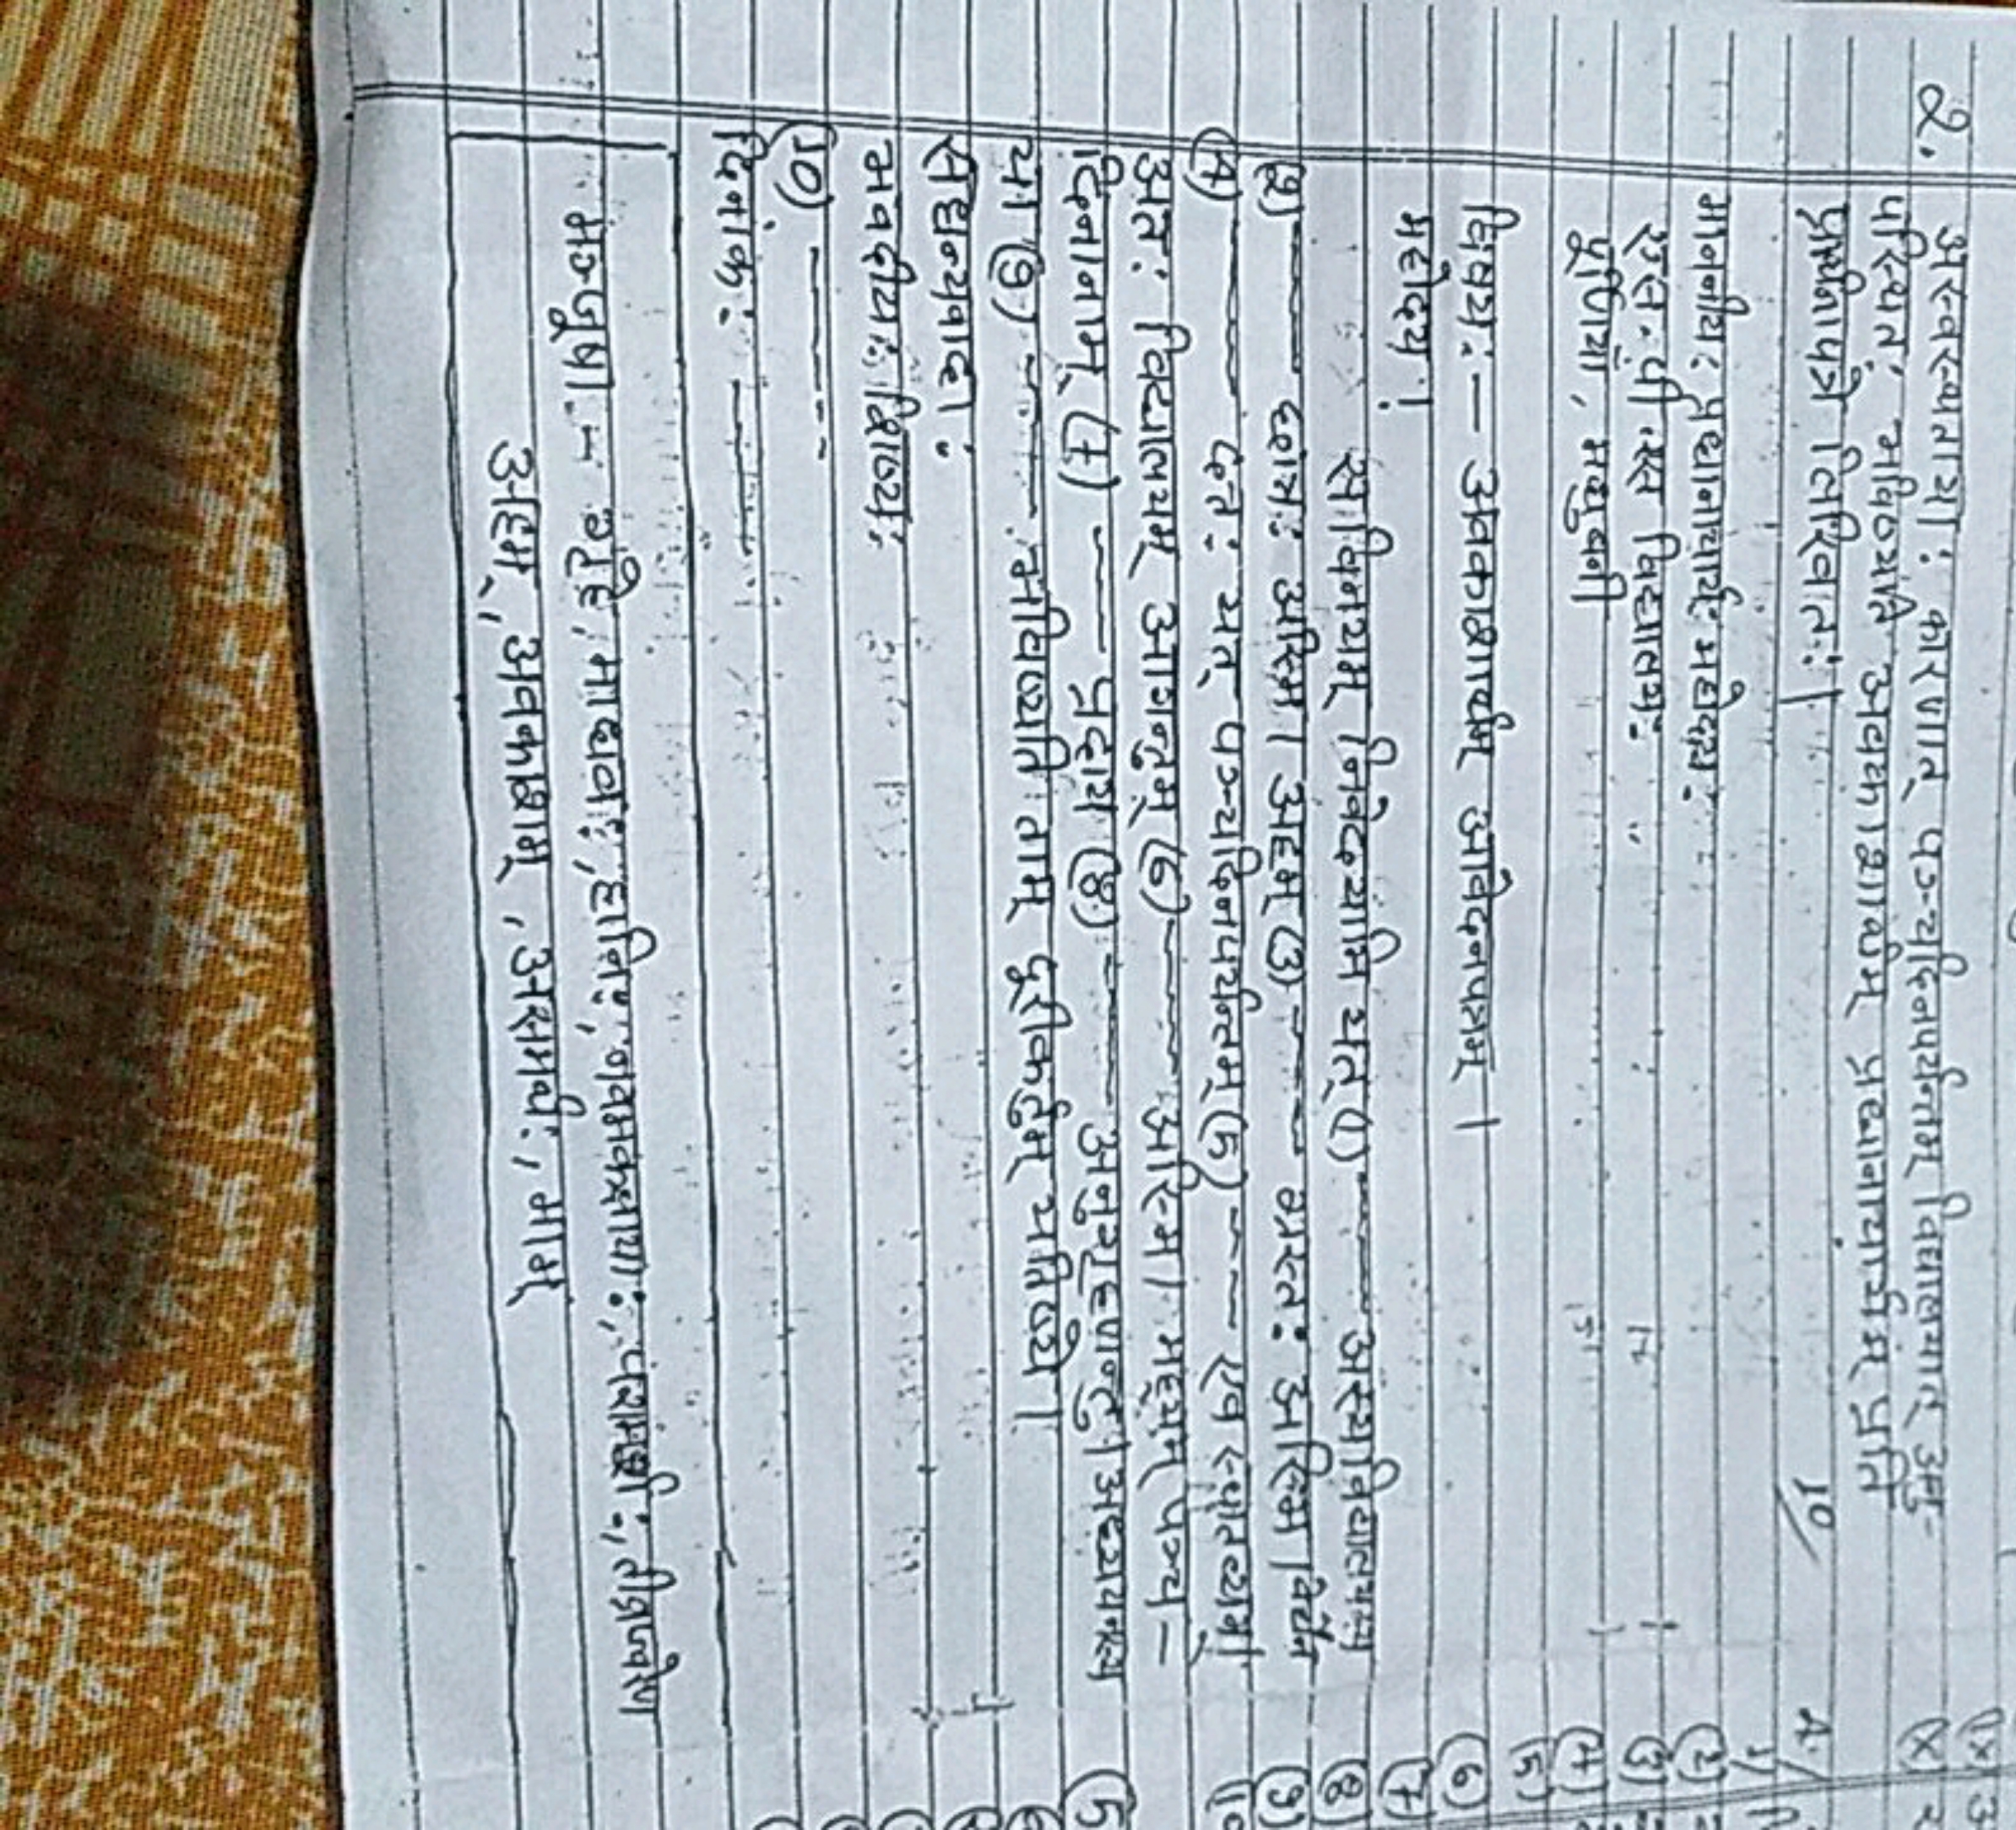 2. अस्वस्थतायाः कारणात् पञ्चदिनपर्यन्तम् विद्यालयात् अनु-
परिस्थतः भविष्यति अवकाशार्थम् प्रधानाचार्यम् प्रति
प्रार्थनापत्रं लिखित। 10
माननीयः प्रधानाचार्यः महोदयः
एस. पी. एस विद्यालयः
पूर्णियां, मधुबनी
विषयः — अवकाशार्थम् आवेदनपत्रम् ।
महोदय !
सविनयम् निवेदयामि यत् (1) —— अस्यविद्यालयस्य
(2) —— छात्रः अस्मि। अहम् (3) ---- ग्रस्तः अस्मि। वैद्येन
(4) —— दत्तः यत् पञ्चदिनपर्यन्तम् (5) --- एव स्थातव्यम्।
अतः विद्यालयम् आगन्तुम् (6) —— अस्मि। मह्यम् पञ्च —
दिनानाम् (7) —— प्रदाय (8) —— अनुगृह्णन्तु। अध्ययनस्य
या (9) —— भविष्यति ताम् पूरीकर्तुम् यतिष्ये।
सधन्यवादाः
भवदीयः शिष्यः
(10) ----
दिनांकः ——
मञ्जूषा - गृहे, माधवः, हानिः, नवमकक्षायाः, परामर्शः, तीव्रज्वरेण
अहम्, अवकाशम्, असमर्थः, माम्